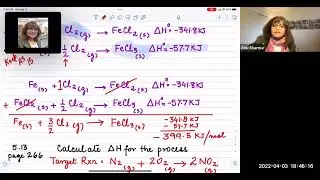 Cl₂(g) → FeCl₂(s) ΔH° = -341.8KJ
½ Cl₂(g) → FeCl₃(s) ΔH° = -57.7KJ
Fe(s) + 1Cl₂(g) → FeCl₂(s) ΔH° = -341.8KJ
+ FeCl₂(s) + ½ Cl₂(g) → FeCl₃(s) ΔH° = -57.7KJ
Fe(s) + 3/2 Cl₂(g) → FeCl₃(s)
-341.8KJ
-57.7KJ
-399.5KJ/mol
5.13 Calculate ΔH for the process
page 266 Target Rxn: N₂(g) + 2O₂(g) → 2NO₂(g)
2022-04-03 18:46:16